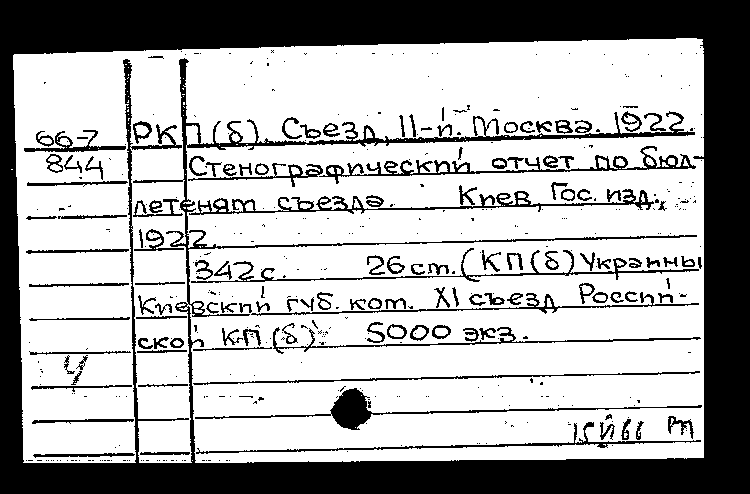 66-7 РКП(б). Съезд, 11-й. Москва. 1922.
844 Стенографический отчет по бюл-
летеням съезда. Киев, Гос. изд.,
1922.
342 с. 26 cm. (КП(б) Украины
Киевский губ. ком. XI съезд Россий-
ской К.П.(б). 5000 экз.
Ч
15 II 66 РП